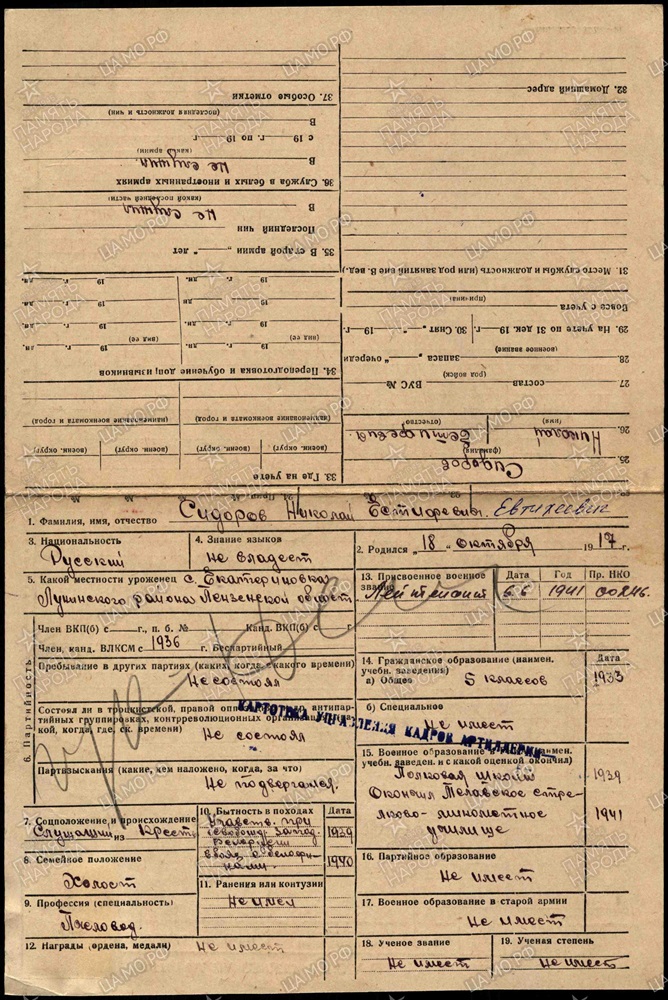 32. Домашний адрес
31. Место службы и должность (или род занятий вне В. вед.)
Вовсе с учета
(причина)
29. На учете по 31 дек. 19 г. 30. Снят „ “ 19 г.
(военное звание)
28. запаса очереди
(род войск)
27 состав ВУС №
26. Николай Естифеевич
(имя) отчество
25 Сидоров
(фамилия)
37. Особые отметки
(последняя должность и чин)
В
с 19 г. по 19 г.
(какой армии)
В не служил.
36. Служба в белых и иностранных армиях
(какой последней части)
В не служил
Последний чин
35. В старой армии „ “ лет
19 г. дн. 19 г. дн.
19 г. дн. 19 г. дн.
19 г. дн. 19 г. дн.
19 г. дн. 19 г. дн.
(вид ее) (вид ее)
34. Переподготовка и обучение доп. призывников
(наименование военкомата и город) (наименование военкомата и город)
(воен. округ) (воен. округ) (воен. округ) (воен. округ)
33. Где на учете
1. Фамилия, имя, отчество Сидоров Николай Естифеевич. Евтихеевич
3. Национальность Русский
4. Знание языков не владеет
2. Родился „18“ октября 1917 г.
5. Какой местности уроженец с. Екатериновка
Лунинского района Пензенской област
13. Присвоенное военное звание Дата Год Пр. НКО
Лейтенант 6.6 1941
6. Партийность
Член ВКП(б) с г., п. б. № Канд. ВКП(б) с г.
Член, канд. ВЛКСМ с 1936 г. Беспартийный
Пребывание в других партиях (каких, когда, с какого времени)
Не состоял
Состоял ли в троцкистской, правой оппозиции, антипартийных группировках, контрреволюционных организациях (какой, когда, где, ск. времени)
Не состоял
Партвзыскания (какие, кем наложено, когда, за что)
Не подвергался.
КАРТОТЕКА УПРАВЛЕНИЯ КАДРОВ АРТИЛЛЕРИИ
14. Гражданское образование (наимен. учебн. заведения) Дата
а) Общее 5 классов 1933
б) Специальное
Не имеет
15. Военное образование (наимен. учебн. заведен. и с какой оценкой окончил)
Полковая школа 1939
Окончил Телавское стрелково-минометное училище 1941
7. Соцположение и происхождение
Служащий из Крест.
8. Семейное положение
Холост
9. Профессия (специальность)
Пчеловод.
10. Бытность в походах Дата
Участв. при освобожд. запад. Белорусии 1939
в войне с белофинами. 1940
11. Ранения или контузии
Не имел
12. Награды (ордена, медали) Не имеет
16. Партийное образование
Не имеет
17. Военное образование в старой армии
Не имеет
18. Ученое звание
Не имеет
19. Ученая степень
Не имеет
ПАМЯТЬ НАРОДА
ЦАМО.РФ